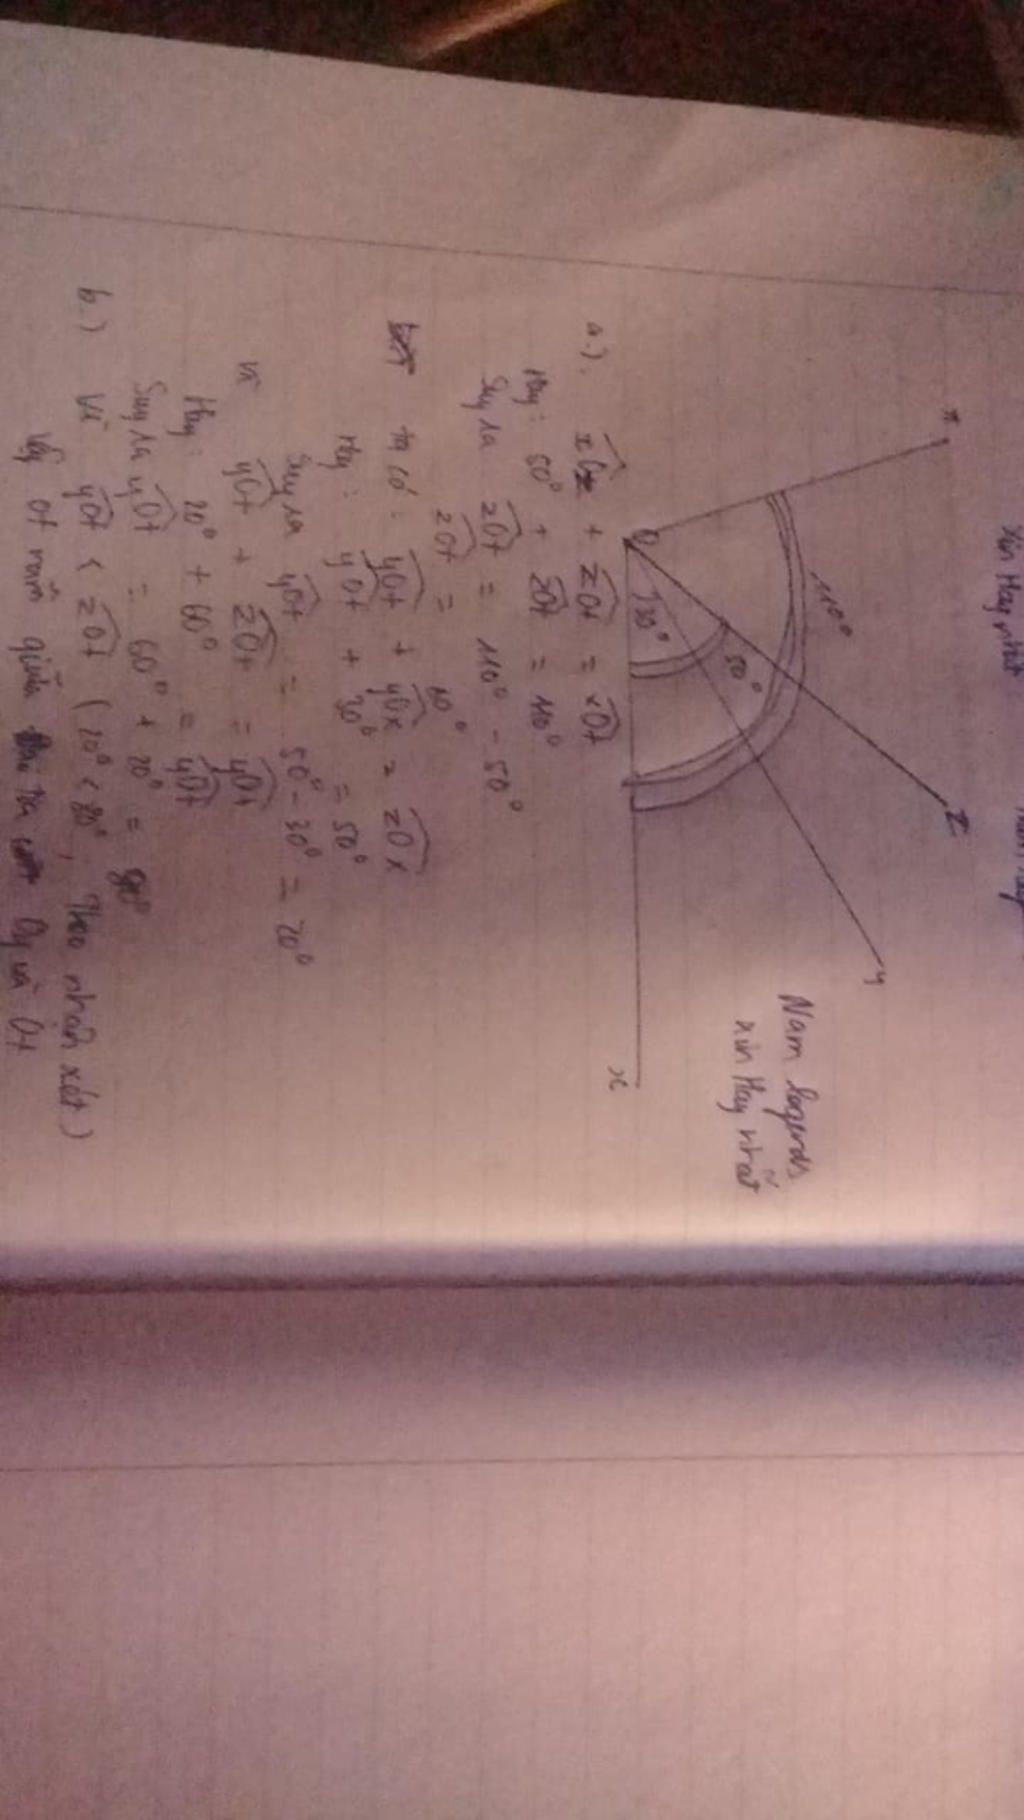 Xin Hay nhất
z
y
x
O
110°
50°
30°
Nam legends
xin Hay nhất
a.) xOz + zOt = xOt
Hay: 50° + zOt = 110°
Suy ra zOt = 110° - 50°
zOt = 60°
ta có: yOt + yOx = zOx
Hay: yOt + 30° = 50°
Suy ra yOt = 50° - 30° = 20°
Vì yOt + zOt = yOt
Hay: 20° + 60° = yOt
Suy ra yOt = 60° + 20° = 80°
b.) Vì yOt < zOt (20° < 80°, Theo nhận xét)
Vậy Ot nằm giữa tia Oy và Ot